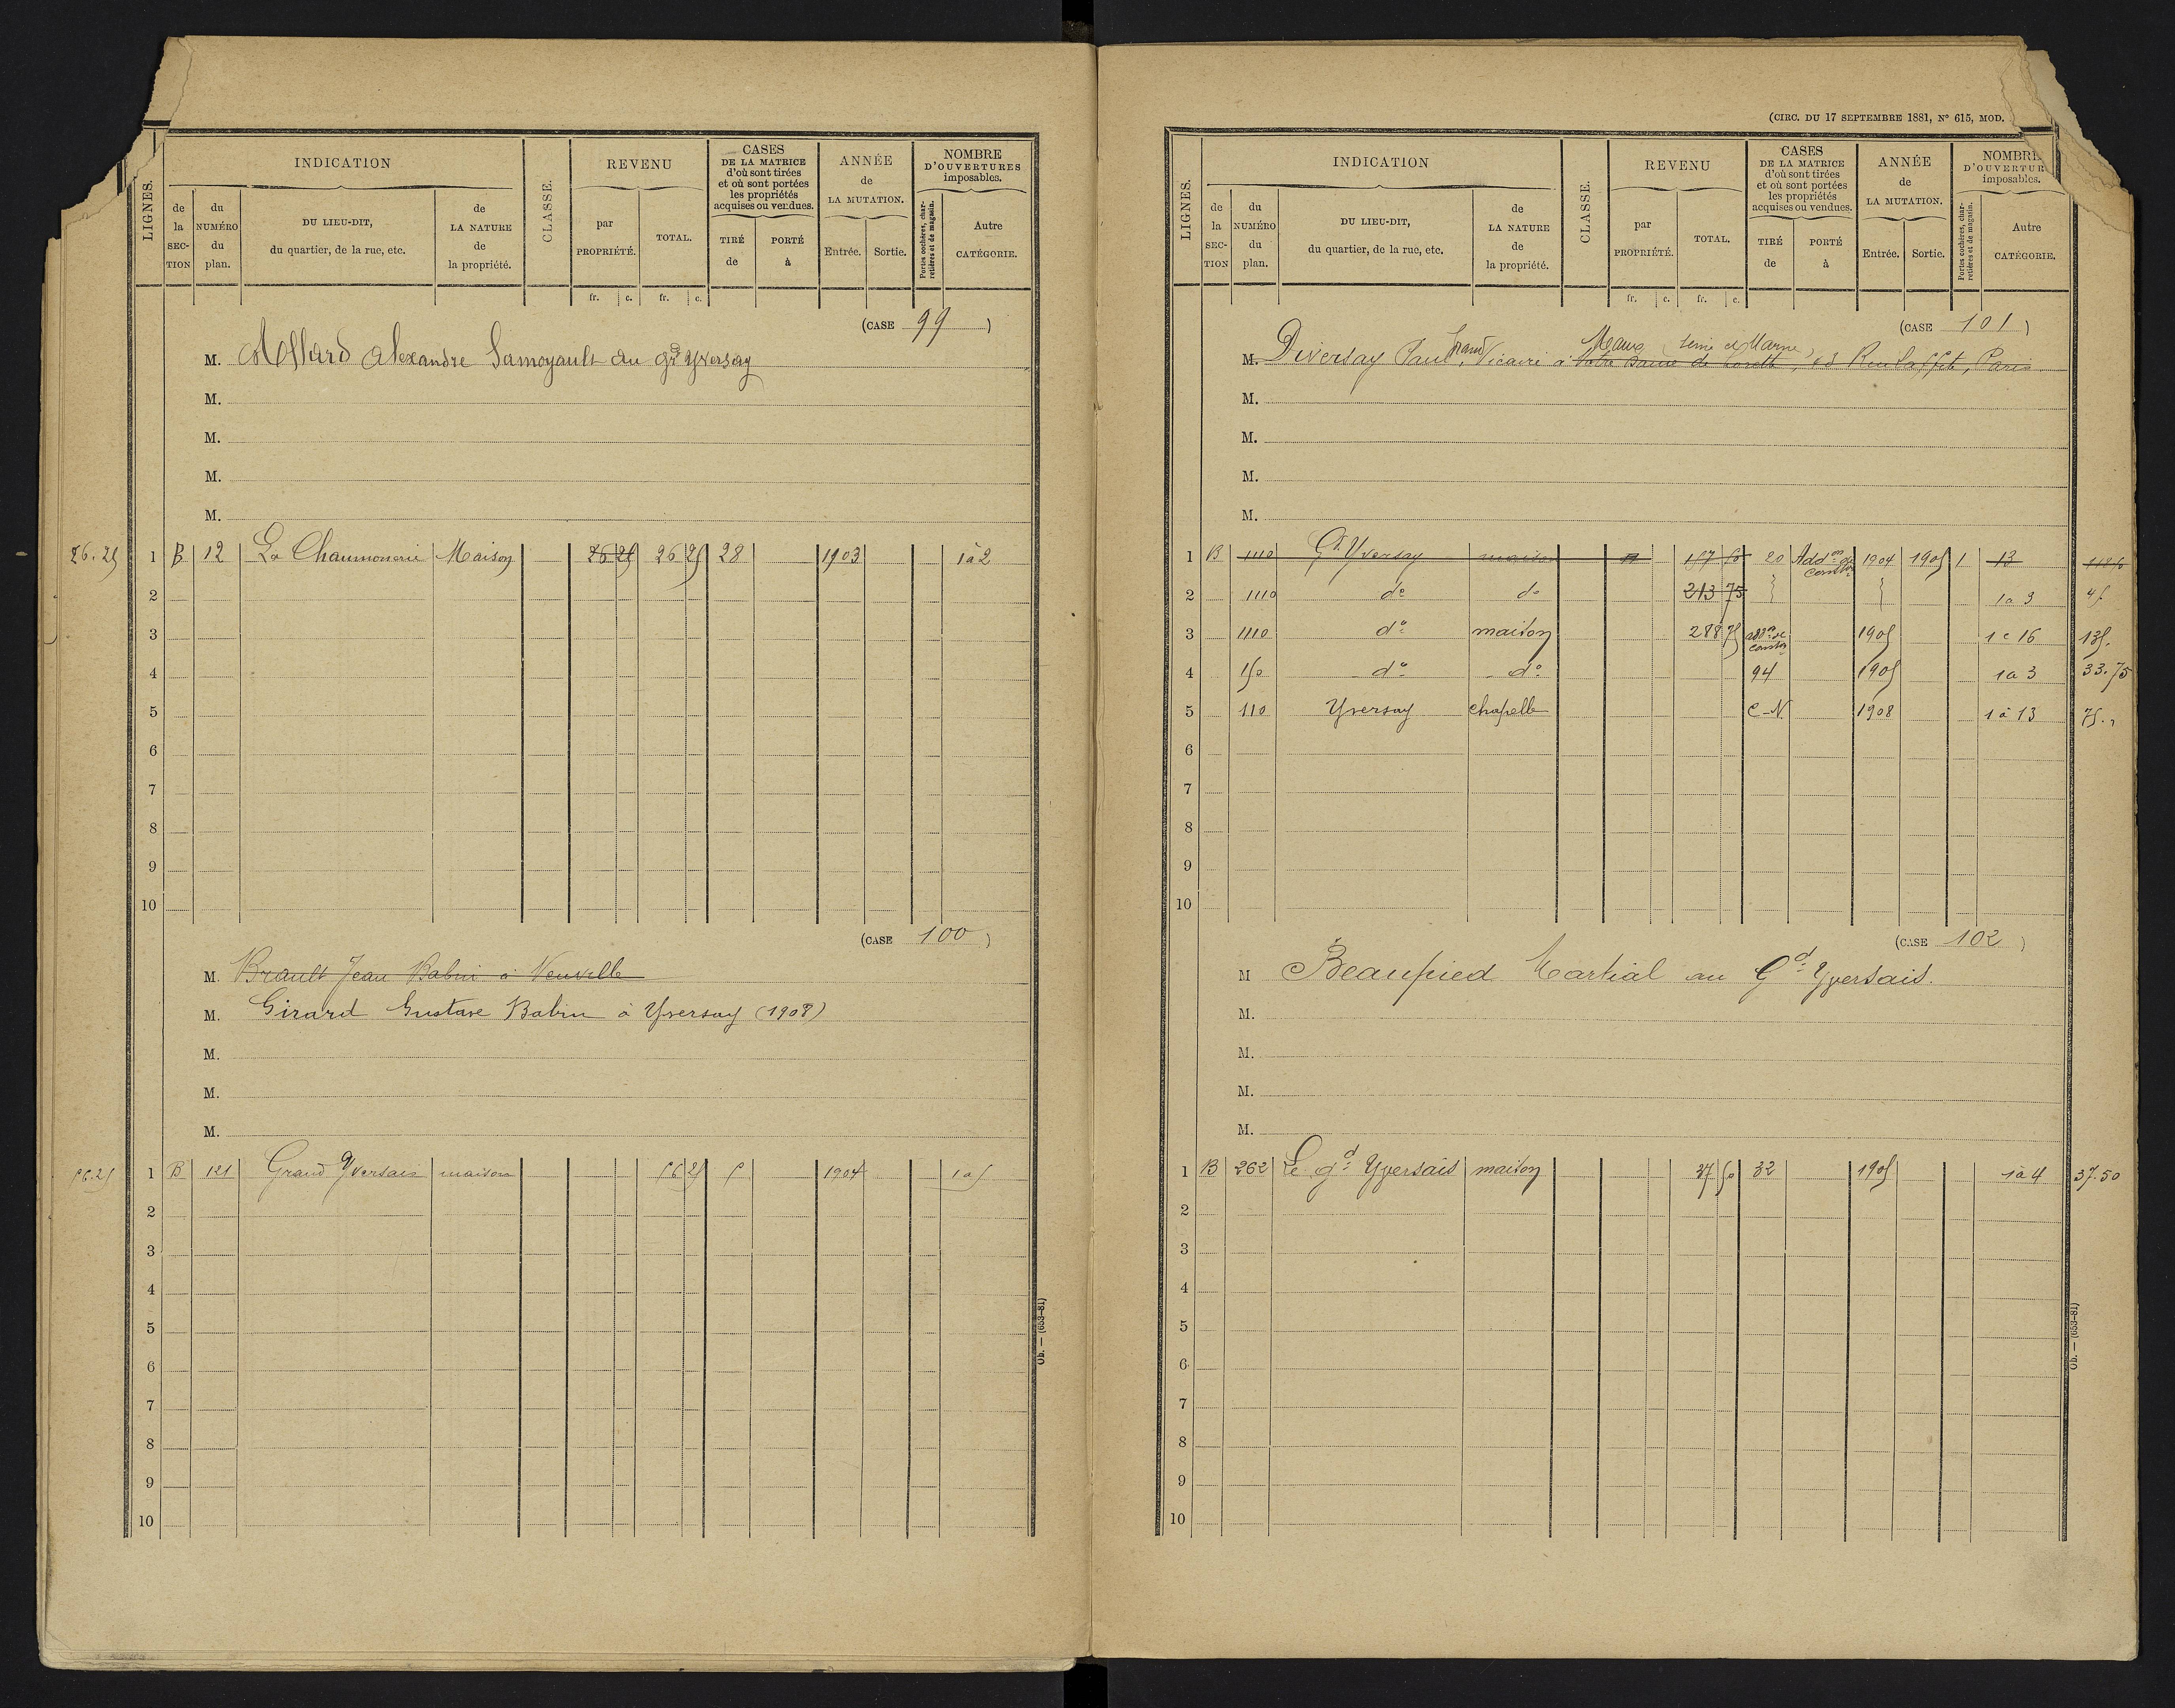 LIGNES.
INDICATION
de la SECTION
du NUMÉRO du plan.
DU LIEU-DIT, du quartier, de la rue, etc.
de LA NATURE de la propriété.
CLASSE.
REVENU
par PROPRIÉTÉ.
TOTAL.
fr. c. fr. c.
CASES DE LA MATRICE d'où sont tirées et où sont portées les propriétés acquises ou vendues.
TIRÉ de
PORTÉ à
ANNÉE de LA MUTATION.
Entrée. Sortie.
NOMBRE D'OUVERTURES imposables.
Portes cochères, charretières et de magasin.
Autre CATÉGORIE.
(CASE 99)
M. Allard Alexandre Samoyault au grd Yversay
M.
M.
M.
M.
26.25 1 B 12 La Chaumonerie Maison 26 25 26 25 28 1903 1 à 2
2
3
4
5
6
7
8
9
10
(CASE 100)
M. Brault Jean Babin à Neuville
M. Girard Gustave Babin à Yversay (1908)
M.
M.
M.
56.25 1 B 121 Grand Yversais maison 56 25 5 1904 1 a 5
2
3
4
5
6
7
8
9
10
Ob. — (653-81)
(CIRC. DU 17 SEPTEMBRE 1881, N° 615, MOD.
LIGNES.
INDICATION
de la SECTION
du NUMÉRO du plan.
DU LIEU-DIT, du quartier, de la rue, etc.
de LA NATURE de la propriété.
CLASSE.
REVENU
par PROPRIÉTÉ.
TOTAL.
fr. c. fr. c.
CASES DE LA MATRICE d'où sont tirées et où sont portées les propriétés acquises ou vendues.
TIRÉ de
PORTÉ à
ANNÉE de LA MUTATION.
Entrée. Sortie.
NOMBRE D'OUVERTUR imposables.
Portes cochères, charretières et de magasin.
Autre CATÉGORIE.
(CASE 101)
Meaux (Seine et Marne)
M. Diversay Paul, Grand Vicaire à Notre Dame de Lorette, 63 Rue Laffite, Paris
M.
M.
M.
M.
1 B 1110 Gd Yversay maison 157 50 20 Addon de Constn 1904 1905 1 13
2 1110 do do 213 75 1 a 3 45
3 1110 do maison 288 75 addon de constn 1905 1 à 16 135.
4 150 do do 94 1905 1 a 3 33.75
5 110 Yversay chapelle C-N 1908 1 à 13 75.,
6
7
8
9
10
(CASE 102)
M Beaupied Martial au Gd Yversais.
M.
M.
M.
M.
1 B 262 Le gd Yversais maison 37 50 32 1905 1 à 4 37.50
2
3
4
5
6
7
8
9
10
Ob. — (653-81)